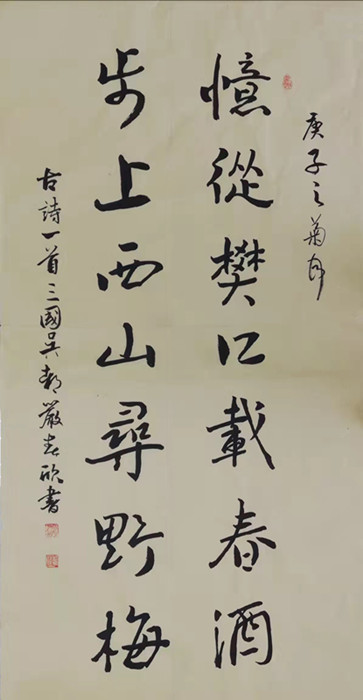 庚子之菊月
憶從樊口載春酒
步上西山尋野梅
古詩一首三國吴都嚴春欣書